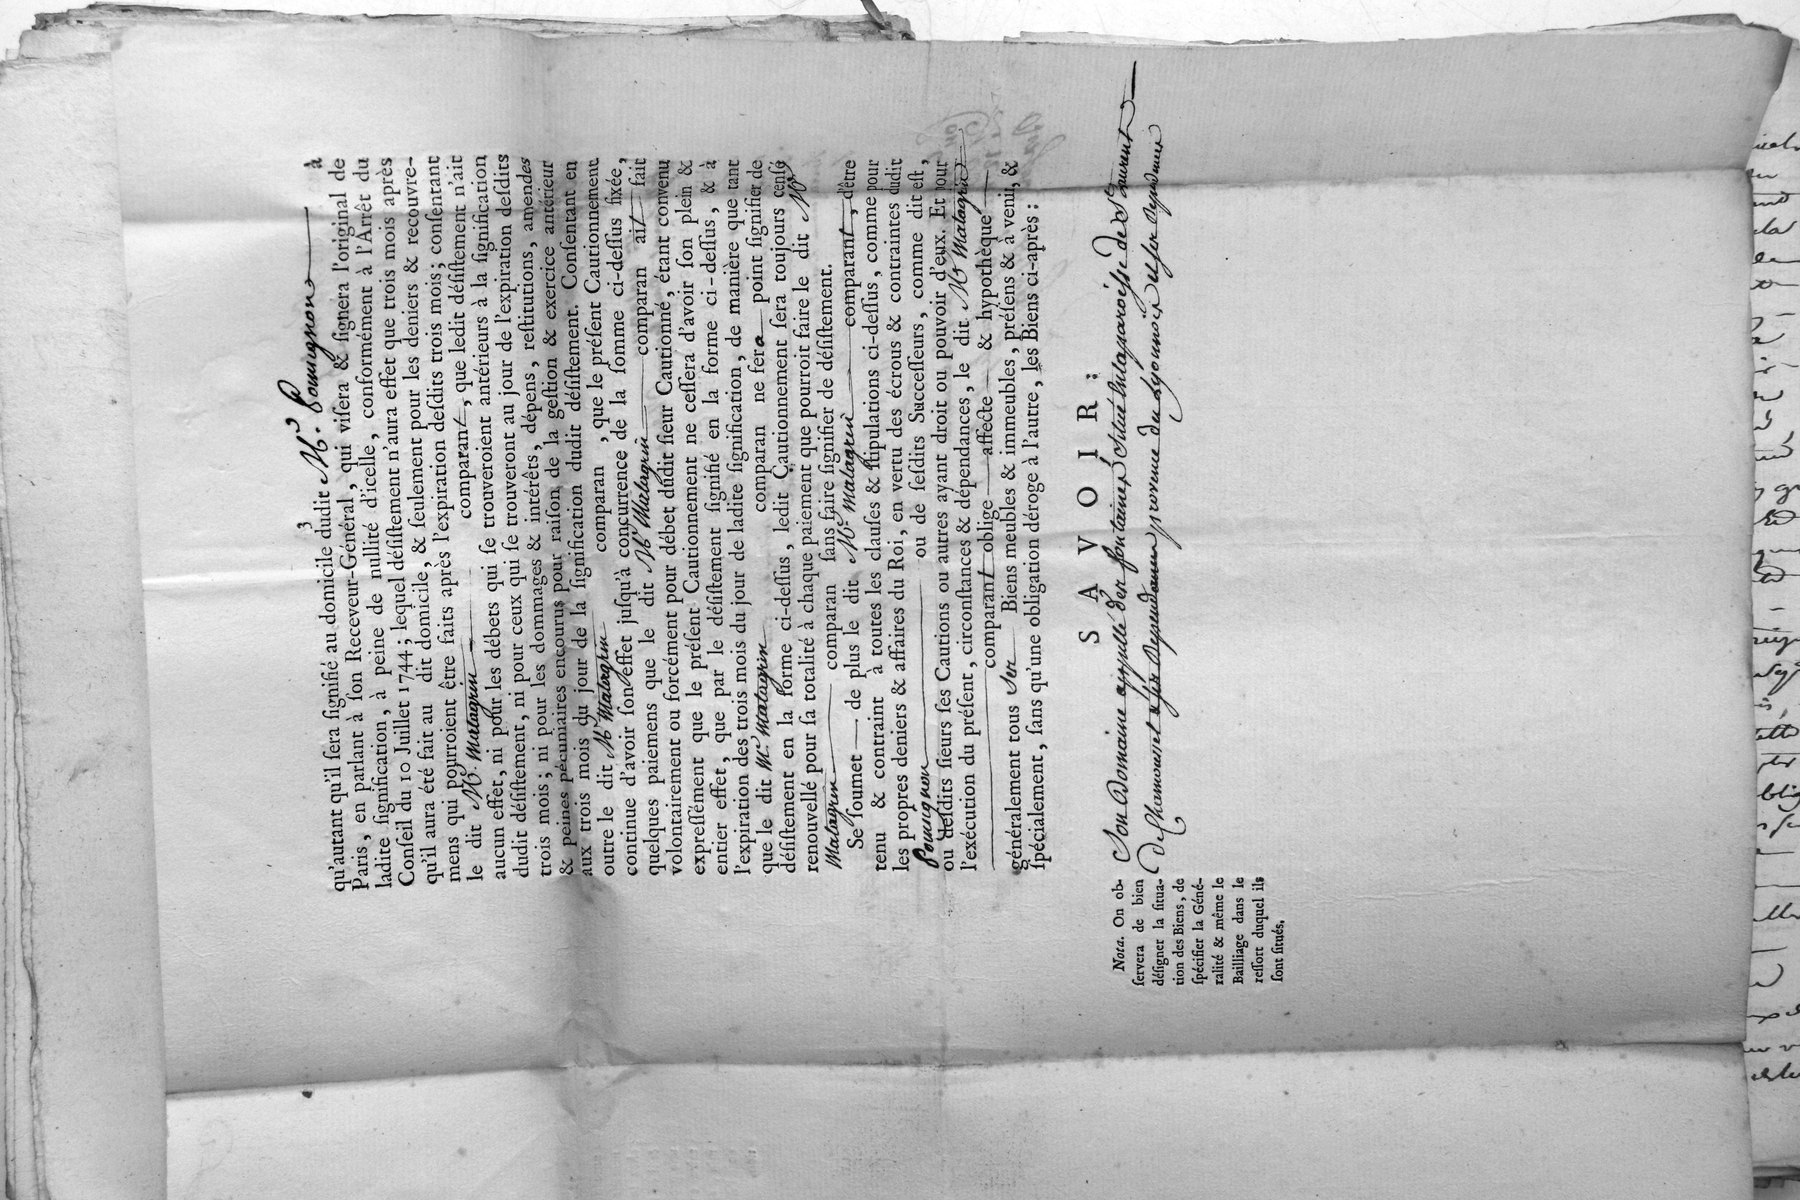 3
qu'autant qu'il sera signifié au domicile dudit Mr. Pourignon à
Paris, en parlant à son Receveur-Général, qui visera & signera l'original de
ladite signification, à peine de nullité d'icelle, conformément à l'Arrêt du
Conseil du 10 Juillet 1744; lequel désistement n'aura effet que trois mois après
qu'il aura été fait au dit domicile, & seulement pour les deniers & recouvre-
mens qui pourroient être faits après l'expiration desdits trois mois; consentant
le dit Mr. Matagrin comparant, que ledit désistement n'ait
aucun effet, ni pour les débets qui se trouveroient antérieurs à la signification
dudit désistement, ni pour ceux qui se trouveront au jour de l'expiration desdits
trois mois; ni pour les dommages & intérêts, dépens, restitutions, amendes
& peines pécuniaires encourus pour raison de la gestion & exercice antérieur
aux trois mois du jour de la signification dudit désistement. Consentant en
outre le dit Mr Matagrin comparan, que le présent Cautionnement
continue d'avoir son effet jusqu'à concurrence de la somme ci-dessus fixée,
quelques paiemens que le dit Mr Matagrin comparan ait fait
volontairement ou forcément pour débet dudit sieur Cautionné, étant convenu
expressément que le présent Cautionnement ne cessera d'avoir son plein &
entier effet, que par le désistement signifié en la forme ci-dessus, & à
l'expiration des trois mois du jour de ladite signification, de manière que tant
que le dit Mr. Matagrin comparan ne fera point signifier de
désistement en la forme ci-dessus, ledit Cautionnement sera toujours censé
renouvellé pour sa totalité à chaque paiement que pourroit faire le dit Mr
Matagrin comparan sans faire signifier de désistement.
Se soumet de plus le dit Mr. Matagrin comparant, d'être
tenu & contraint à toutes les clauses & stipulations ci-dessus, comme pour
les propres deniers & affaires du Roi, en vertu des écrous & contraintes dudit
Pourignon ou de sesdits Successeurs, comme dit est,
ou desdits sieurs ses Cautions ou autres ayant droit ou pouvoir d'eux. Et pour
l'exécution du présent, circonstances & dépendances, le dit Mr Matagrin
comparant oblige affecte & hypothèque
généralement tous ses Biens meubles & immeubles, présens & à venir, &
spécialement, sans qu'une obligation déroge à l'autre, les Biens ci-après:
SAVOIR:
Nota. On ob-
servera de bien
désigner la situa-
tion des Biens, de
spécifier la Géné-
ralité & même le
Bailliage dans le
ressort duquel ils
sont situés.
Son Domaine appellé des fontaines Situé En la paroisse de St Laurent
De Chamousset & ses Dependances province du Lyonnois et ses Dependances